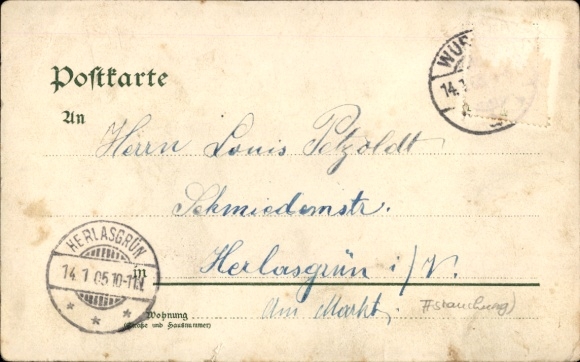 Postkarte
WUR
14.1.05
An
Herrn Louis Petzoldt
Schmiedemstr.
HERLASGRÜN
14.1.05.10-11V.
in
Herlasgrün i/V.
Am Markt.
Wohnung
(Straße und Hausnummer)